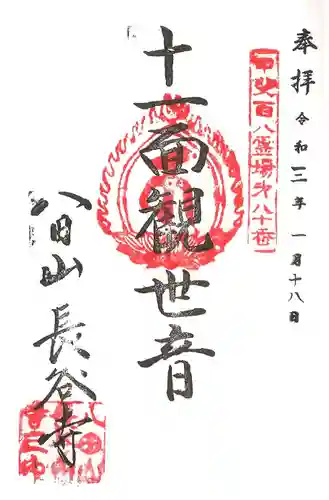 奉拝 令和三年一月十八日
甲斐百八霊場第八十番
十一面観世音
八日山 長谷寺